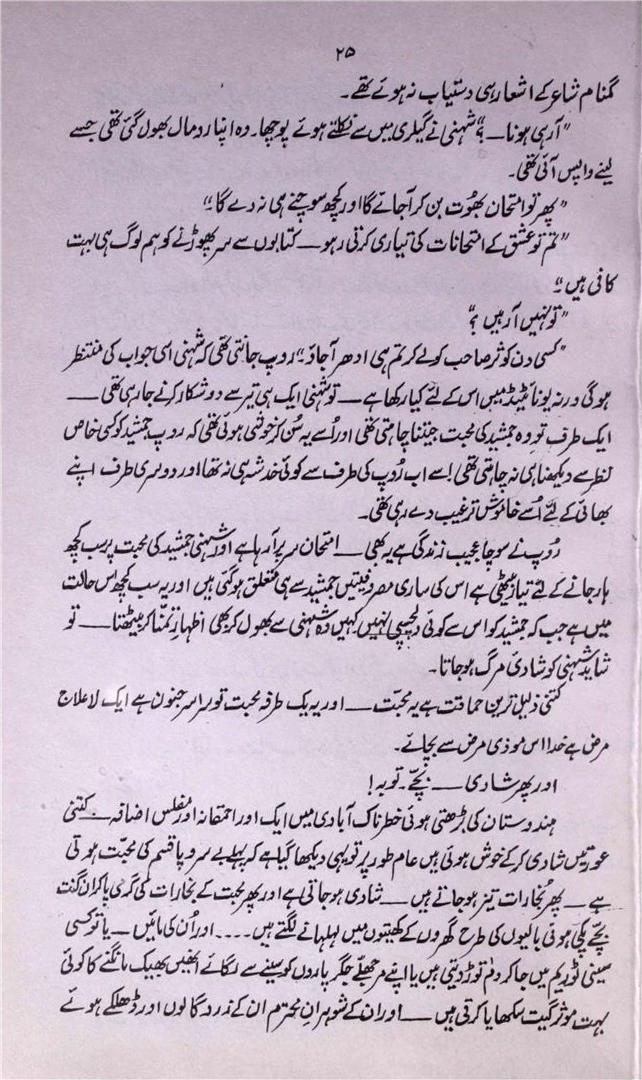 ۲۵
گمنام شاعر کے اشعار ہی دستیاب نہ ہوئے تھے۔
”آ رہی ہونا ــــ ؟“ شہنی نے گیلری میں سے نکلتے ہوئے پوچھا۔ وہ اپنا رومال بھول گئی تھی جسے
لینے واپس آئی تھی۔
”پھر تو امتحان بھوت بن کر آجائے گا اور کچھ سوچنے ہی نہ دے گا۔“
”تم تو عشق کے امتحانات کی تیاری کرتی رہو ــــ کتابوں سے سر پھوڑنے کو ہم لوگ ہی بہت
کافی ہیں۔“
”تو نہیں آر ہیں ؟“
”کسی دن کوثر صاحب کو لے کر تم ہی ادھر آجاؤ۔“ روپ جانتی تھی کہ شہنی اسی جواب کی منتظر
ہوگی ورنہ یونائیٹڈ میں اس کے لئے کیا رکھا ہے ــــ تو شہنی ایک ہی تیر سے دو شکار کرنے جارہی تھی ــــ
ایک طرف تو وہ جمشید کی محبت جیتنا چاہتی تھی اور اُسے یہ سُن کر خوشی ہوئی تھی کہ روپ جمشید کو کسی خاص
نظر سے دیکھنا ہی نہ چاہتی تھی! اسے اب رُوپ کی طرف سے کوئی خدشہ ہی نہ تھا اور دوسری طرف اپنے
بھائی کے لئے اُسے خاموش ترغیب دے رہی تھی۔
رُوپ نے سوچا عجیب زندگی ہے یہ بھی ــــ امتحان سر پر آرہا ہے اور شہنی جمشید کی محبت پر سب کچھ
ہار جانے کے لئے تیار بیٹھی ہے اس کی ساری مصروفیتیں جمشید سے ہی متعلق ہوگئی ہیں اور یہ سب کچھ اس حالت
میں ہے جب کہ جمشید کو اس سے کوئی دلچسپی نہیں کہیں وہ شہنی سے بھول کر بھی اظہارِ تمنا کر بیٹھتا ــــ تو
شاید شہنی کو شادی مرگ ہوجاتا۔
کتنی ذلیل ترین حماقت ہے یہ محبّت ــــ اور یہ یک طرفہ محبت تو سراسر جنون ہے ایک لاعلاج
مرض ہے خدا اس موذی مرض سے بچائے۔
اور پھر شادی ــــ بچّے۔ توبہ!
ہندوستان کی بڑھتی ہوئی خطرناک آبادی میں ایک اور احمقانہ اور مفلس اضافہ ــــ کتنی
عورتیں شادی کرکے خوش ہوئی ہیں عام طور پر تو یہی دیکھا گیا ہے کہ پہلے بے سروپا قسم کی محبت ہوتی
ہے ــــ پھر بُخارات تیز ہوجاتے ہیں ــــ شادی ہوجاتی ہے اور پھر محبت کے بخارات کی گرمی پاکر ان گنت
بچّے پکی ہوئی بالیوں کی طرح گھروں کے کھیتوں میں لہلہانے لگتے ہیں .... اور اُن کی مائیں ــــ یا تو کسی
سینی ٹوریم میں جاکر دم توڑ دیتی ہیں یا اپنے مرجھلے جگر پاروں کو سینے سے لگائے انھیں بھیک مانگنے کا کوئی
بہت موثر گیت سکھایا کرتی ہیں ــــ اور ان کے شوہرانِ محترم ان کے زرد گالوں اور ڈھلکے ہوئے